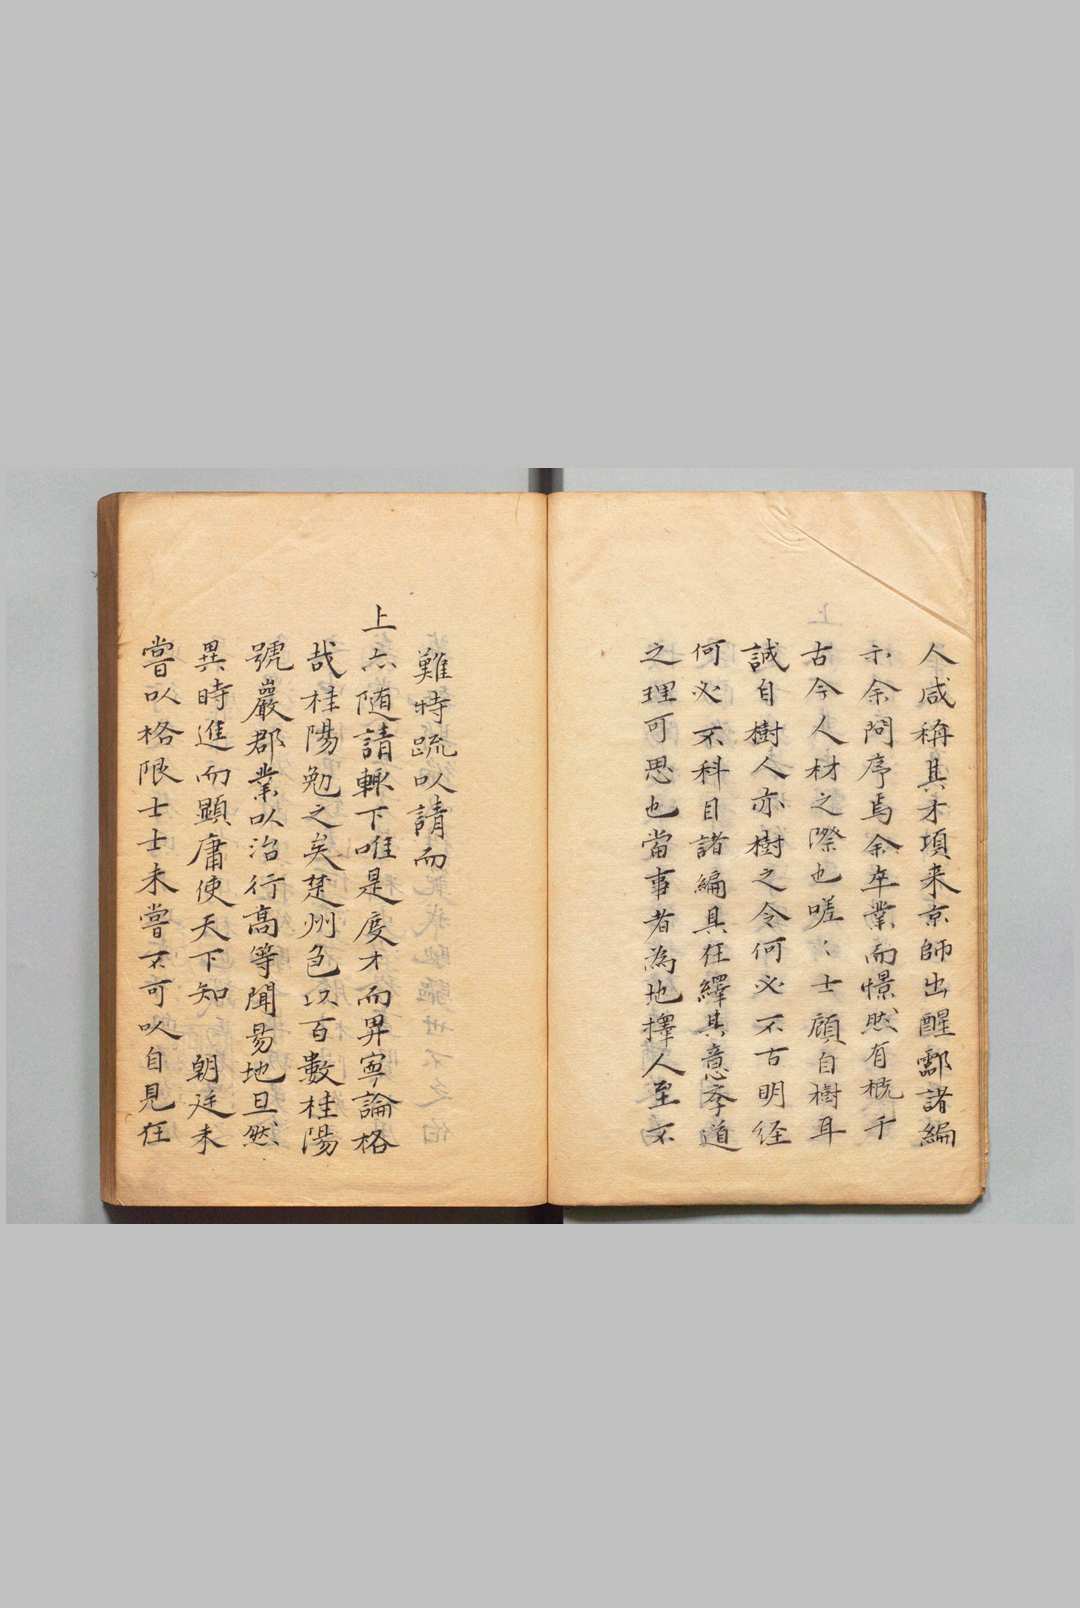 人咸稱其才項来京師出醒鄠諸編
示余問序焉余卒業而憬然有概于
古今人材之際也嗟〻士顧自樹耳
誠自樹人亦樹之令何必不古明経
何必不科目諸編具在繹其意孝道
之理可思也當事者為地擇人至不
難特疏以請而
上亦随請輙下唯是度才而畀寧論格
哉桂陽勉之矣楚州邑以百數桂陽
號巖郡業以治行高等聞易地旦然
異時進而顕庸使天下知 朝廷未
嘗以格限士士未嘗不可以自見在